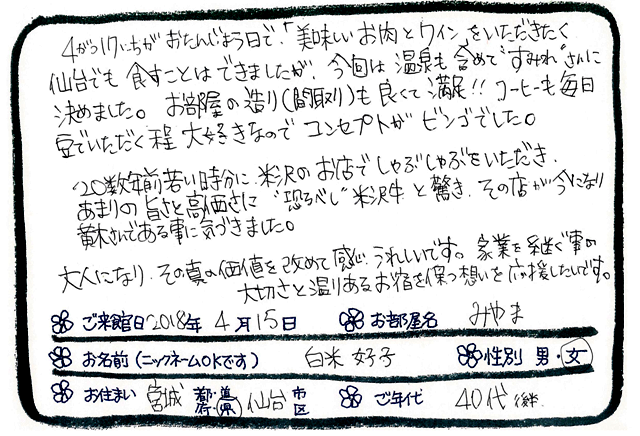 4がつ17にちが おたんじょう日で、「美味しいお肉とワイン」をいただきたく
仙台でも 食すことは できましたが、今回は 温泉も 含めて "すみれ" さんに
決めました。お部屋の造り(間取り)も良くて 満足!! コーヒーも毎日
豆でいただく程 大好きなので コンセプトが ビンゴでした。
20数年前 若い時分に 米沢の お店で しゃぶしゃぶをいただき、
あまりの 旨さと 高価さに "恐るべし" 米沢牛 と 驚き、その店が 今になり
黄木さんである事に 気づきました。
大人になり、その真の価値を 改めて 感じ、うれしいです。家業を 継ぐ事の
大切さと 温りあるお宿を 保つ想いを 応援したいです。
ご来館日 2018年 4月15日 お部屋名 みやま
お名前(ニックネームOKです) 白米 好子 性別 男・女
お住まい 宮城 都・道・府・県 仙台 市 区 ご年代 40代 後半